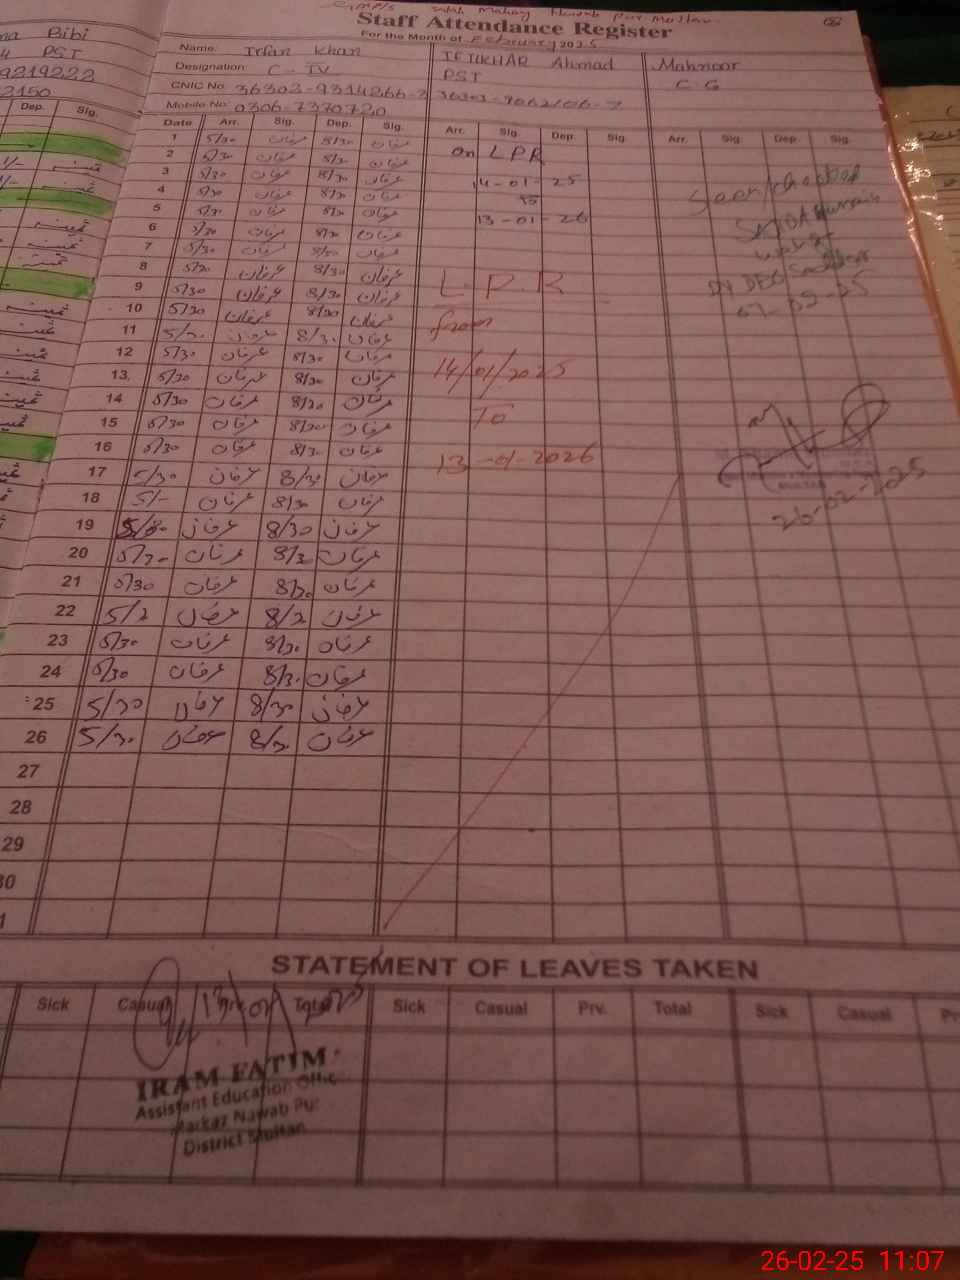 Bibi
PST
9219222
2150
Dep. Sig.
Staff Attendance Register
For the Month of February 2025
Name: Irfan Khan
Designation: C - IV
CNIC No: 36303-9314266-
Mobile No: 0306-7370720
IFTIKHAR Ahmad
PST
Mahnoor
C. G
Date Arr. Sig. Dep. Sig. Arr. Sig. Dep. Sig. Arr. Sig. Dep. Sig.
1 5/30 عرفان 8/30 عرفان
2 5/30 عرفان 8/30 عرفان
3 5/30 عرفان 8/30 عرفان
4 5/30 عرفان 8/30 عرفان
5 5/30 عرفان 8/30 عرفان
6 5/30 عرفان 8/30 عرفان
7 5/30 عرفان 8/30 عرفان
8 5/30 عرفان 8/30 عرفان
9 5/30 عرفان 8/30 عرفان
10 5/30 عرفان 8/30 عرفان
11 5/30 عرفان 8/30 عرفان
12 5/30 عرفان 8/30 عرفان
13 5/30 عرفان 8/30 عرفان
14 5/30 عرفان 8/30 عرفان
15 5/30 عرفان 8/30 عرفان
16 5/30 عرفان 8/30 عرفان
17 5/30 عرفان 8/30 عرفان
18 5/- عرفان 8/30 عرفان
19 5/30 عرفان 8/30 عرفان
20 5/30 عرفان 8/30 عرفان
21 5/30 عرفان 8/30 عرفان
22 5/2 عرفان 8/2 عرفان
23 5/30 عرفان 8/30 عرفان
24 5/30 عرفان 8/30 عرفان
25 5/30 عرفان 8/30 عرفان
26 5/30 عرفان 8/30 عرفان
27
28
29
30
On LPR
14-01-25
to
13-01-26
L.P.R
from
14/01/2025
To
13-01-2026
Seen/checked
26-02-2025
STATEMENT OF LEAVES TAKEN
Sick Casual Prv. Total Sick Casual Prv. Total Sick Casual
IRAM FATIM
Assistant Education Offic
Markaz Nawab Pu
District Multan
26-02-25 11:07